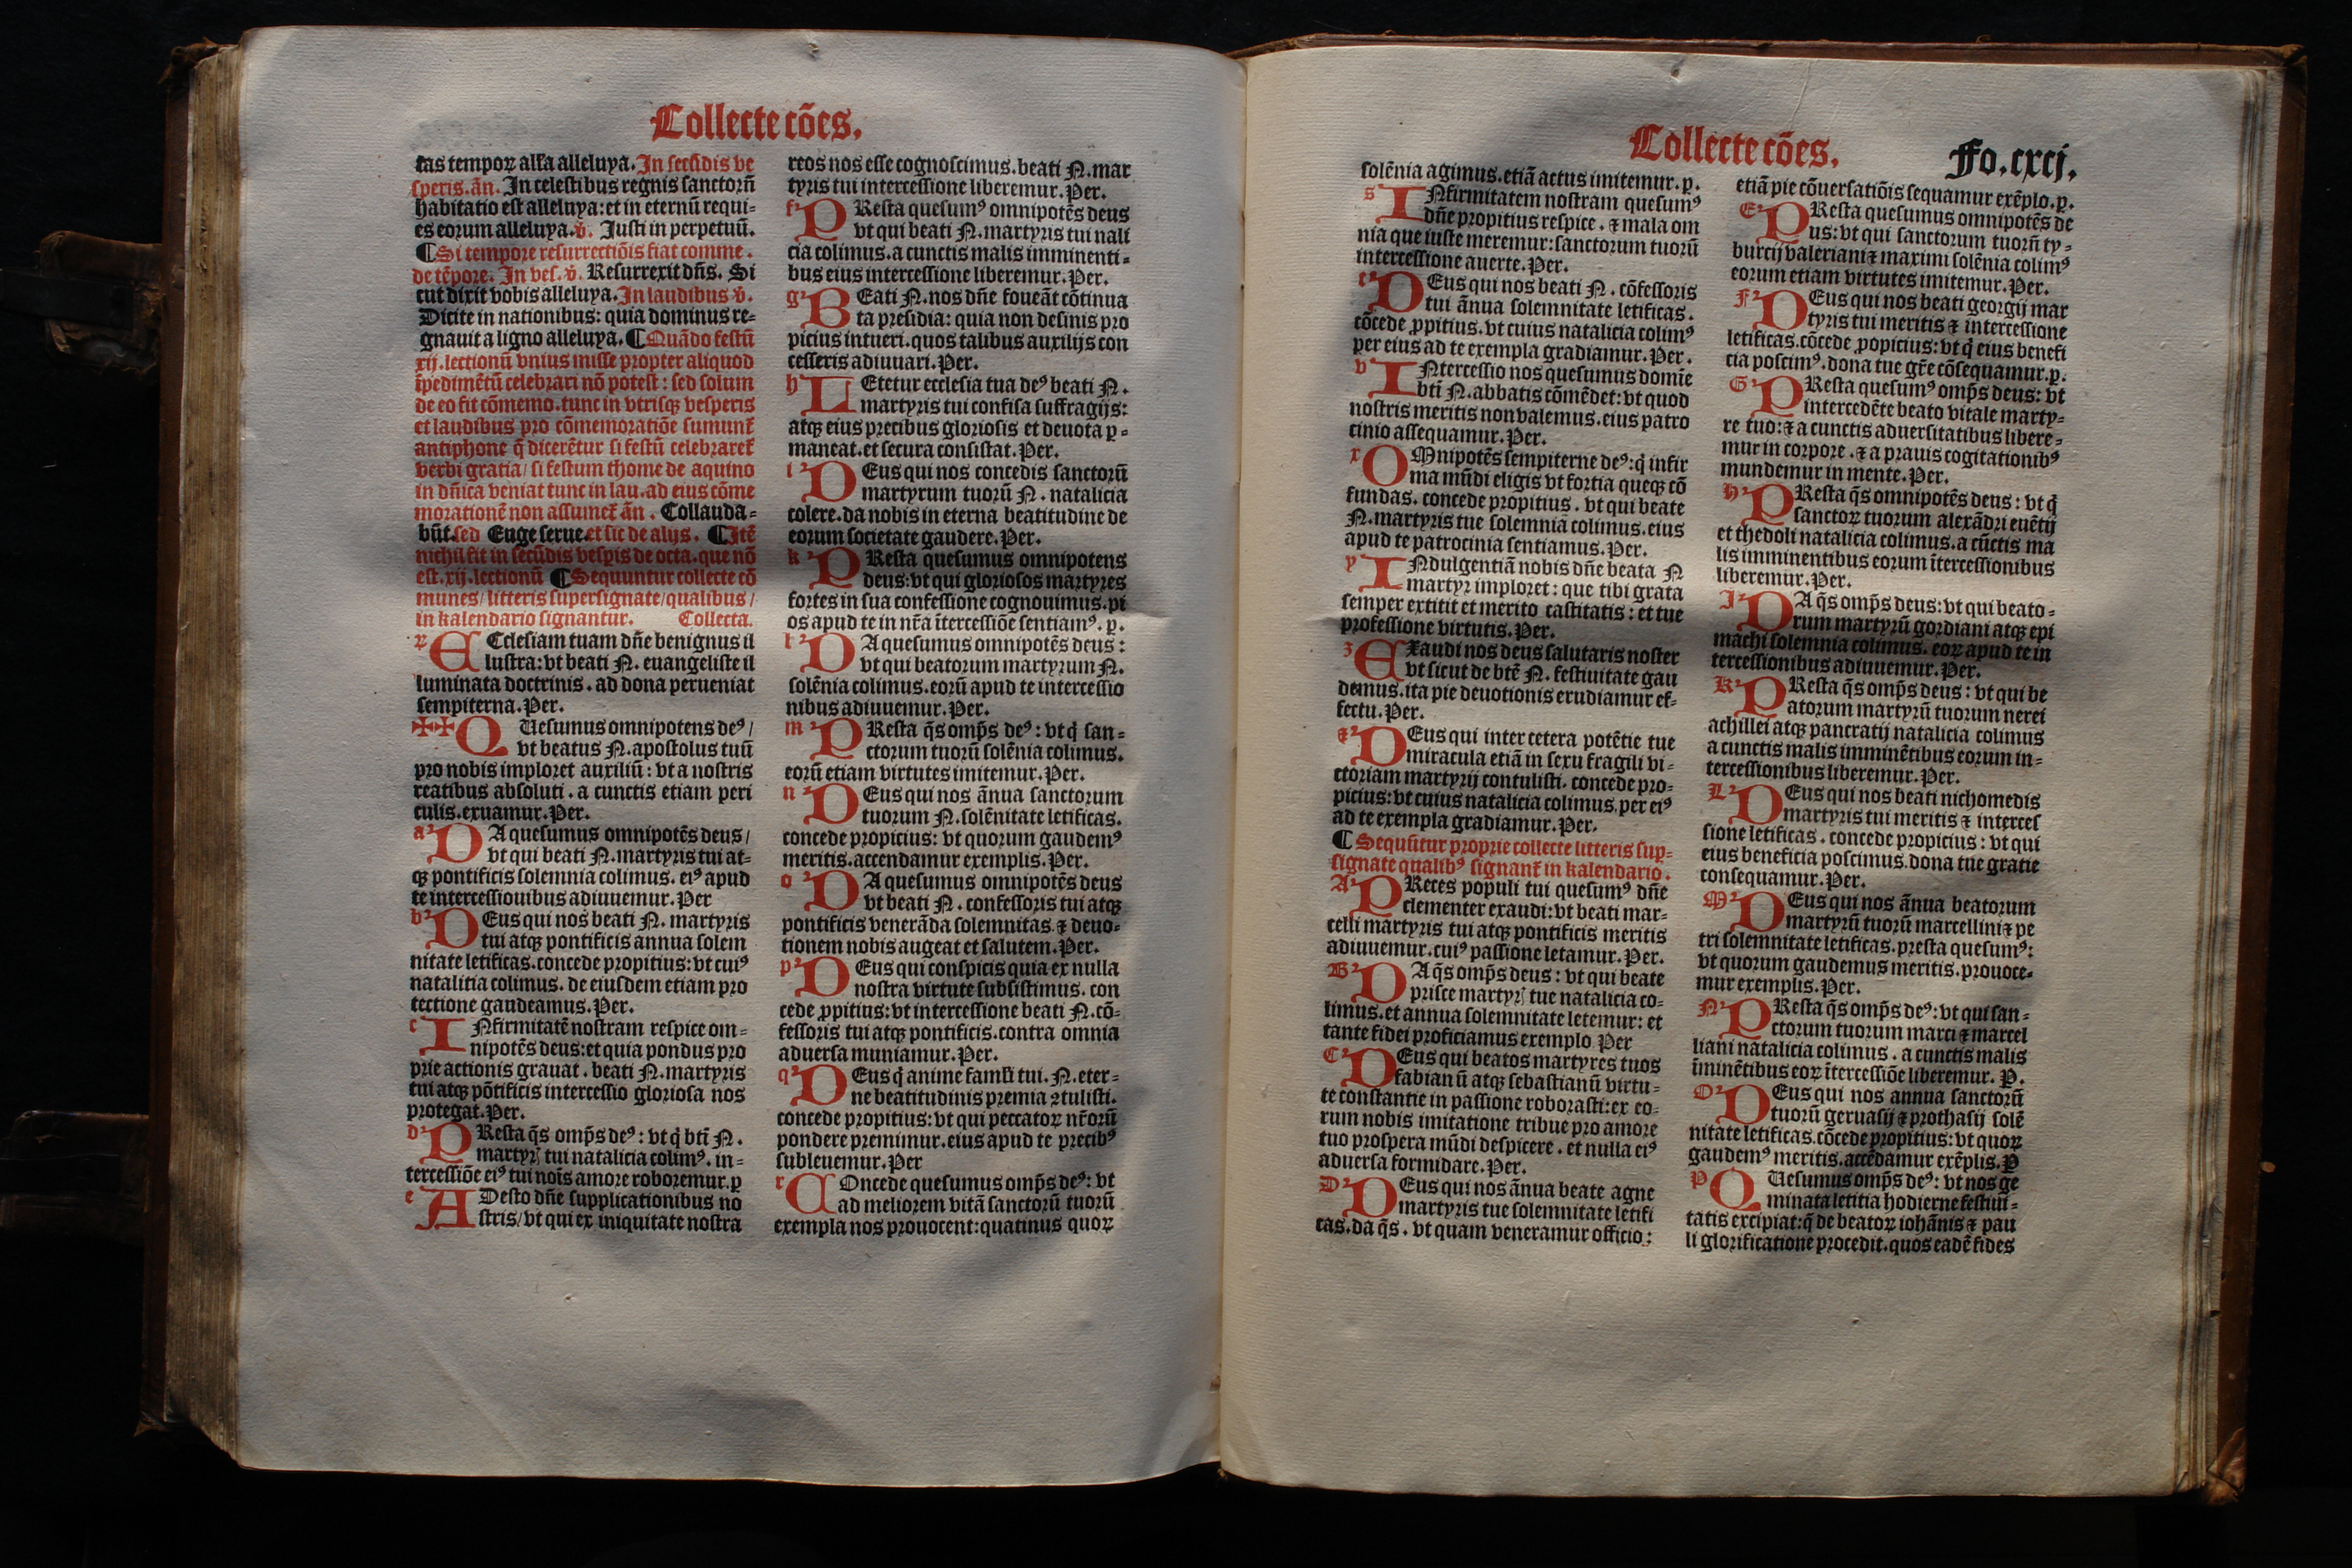 Collecte cões.
tas tempoꝝ alľa alleluya. In secũdis ve
speris. ãn. In celestibus regnis sanctorũ
habitatio est alleluya: et in eternũ requi-
es eorum alleluya. ṽ. Iusti in perpetuũ.
¶ Si tempore resurrectiõis fiat comme.
de tẽpore. In ves. ṽ. Resurrexit dñs. Si
cut dixit vobis alleluya. In laudibus ṽ.
Dicite in nationibus: quia dominus re-
gnauit a ligno alleluya. ¶ Quãdo festũ
xij. lectionũ vnius misse propter aliquod
ĩpedimẽtũ celebrari nõ potest: sed solum
de eo fit cõmemo. tunc in vtrisqꝫ vesperis
et laudibus pro cõmemoratiõe sumunt᷑
antiphone q̃ dicerẽtur si festũ celebraret᷑
verbi gratia/ si festum thome de aquino
in dñica veniat tunc in lau. ad eius cõme
morationẽ non assumet᷑ ãn. Collauda-
bũt. sed Euge serue. et sic de alijs. ¶ Itẽ
nichil fit in secũdis vesp̃is de octa. que nõ
est. xij. lectionũ ¶ Sequuntur collecte cõ
munes/ litteris supersignate/ qualibus/
in kalendario signantur. Collecta.
EClesiam tuam dñe benignus il
lustra: vt beati N. euangeliste il
luminata doctrinis. ad dona perueniat
sempiterna. Per.
✠✠ QUesumus omnipotens deꝰ/
vt beatus N. apostolus tuũ
pro nobis imploret auxiliũ: vt a nostris
reatibus absoluti. a cunctis etiam peri
culis. exuamur. Per.
a DA quesumus omnipotẽs deus/
vt qui beati N. martyris tui at-
qꝫ pontificis solemnia colimus. eiꝰ apud
te intercessionibus adiuuemur. Per
b DEus qui nos beati N. martyris
tui atqꝫ pontificis annua solem
nitate letificas. concede propitius: vt cuiꝰ
natalitia colimus. de eiusdem etiam pro
tectione gaudeamus. Per.
c INfirmitatẽ nostram respice om-
nipotẽs deus: et quia pondus pro
prie actionis grauat. beati N. martyris
tui atqꝫ põtificis intercessio gloriosa nos
protegat. Per.
d PResta q̃s omp̃s deꝰ: vt q̃ bti᷑ N.
martyrꝭ tui natalicia colimꝰ. in-
tercessiõe eiꝰ tui noĩs amore roboremur. ꝑ
e ADesto dñe supplicationibus no
stris/ vt qui ex iniquitate nostra
reos nos esse cognoscimus. beati N. mar
tyris tui intercessione liberemur. Per.
f PResta quesumꝰ omnipotẽs deus
vt qui beati N. martyris tui nali
cia colimus. a cunctis malis imminenti-
bus eius intercessione liberemur. Per.
g BEati N. nos dñe foueãt cõtinua
ta presidia: quia non desinis pro
picius intueri. quos talibus auxilijs con
cesseris adiuuari. Per.
h LEtetur ecclesia tua deꝰ beati N.
martyris tui confisa suffragijs:
atqꝫ eius precibus gloriosis et deuota ꝑ-
maneat. et secura consistat. Per.
i DEus qui nos concedis sanctorũ
martyrum tuorũ N. natalicia
colere. da nobis in eterna beatitudine de
eorum societate gaudere. Per.
k PResta quesumus omnipotens
deus: vt qui gloriosos martyres
fortes in sua confessione cognouimus. pi
os apud te in nr̃a ĩtercessiõe sentiamꝰ. ꝑ.
l DA quesumus omnipotẽs deus:
vt qui beatorum martyrum N.
solẽnia colimus. eorũ apud te intercessio
nibus adiuuemur. Per.
m PResta q̃s omp̃s deꝰ: vt q̃ san-
ctorum tuorũ solẽnia colimus.
eorũ etiam virtutes imitemur. Per.
n DEus qui nos ãnua sanctorum
tuorum N. solẽnitate letificas.
concede propicius: vt quorum gaudemꝰ
meritis. accendamur exemplis. Per.
o DA quesumus omnipotẽs deus
vt beati N. confessoris tui atqꝫ
pontificis venerãda solemnitas. ⁊ deuo-
tionem nobis augeat et salutem. Per.
p DEus qui conspicis quia ex nulla
nostra virtute subsistimus. con
cede ꝓpitius: vt intercessione beati N. cõ-
fessoris tui atqꝫ pontificis. contra omnia
aduersa muniamur. Per.
q DEus q̃ anime famuli tui. N. eter-
ne beatitudinis premia ꝯtulisti.
concede propitius: vt qui peccatoꝝ nr̃orũ
pondere premimur. eius apud te precibꝰ
subleuemur. Per
r COncede quesumus omp̃s deꝰ: vt
ad meliorem vitã sanctorũ tuorũ
exempla nos prouocent: quatinus quoꝝ
Collecte cões. Fo. cxcj.
solẽnia agimus. etiã actus imitemur. ꝑ.
s INfirmitatem nostram quesumꝰ
dñe propitius respice. ⁊ mala om
nia que iuste meremur: sanctorum tuorũ
intercessione auerte. Per.
t DEus qui nos beati N. cõfessoris
tui ãnua solemnitate letificas.
cõcede ꝓpitius. vt cuius natalicia colimꝰ
per eius ad te exempla gradiamur. Per.
v INtercessio nos quesumus domĩe
bti᷑ N. abbatis cõmẽdet: vt quod
nostris meritis non valemus. eius patro
cinio assequamur. Per.
x OMnipotẽs sempiterne deꝰ: q̃ infir
ma mũdi eligis vt fortia queqꝫ cõ
fundas. concede propitius. vt qui beate
N. martyris tue solemniã colimus. eius
apud te patrocinia sentiamus. Per.
y INdulgentiã nobis dñe beata N
martyr imploret: que tibi grata
semper extitit et merito castitatis: et tue
professione virtutis. Per.
z EXaudi nos deus salutaris noster
vt sicut de btẽ N. festiuitate gau
demus. ita pie deuotionis erudiamur ef-
fectu. Per.
⁊ DEus qui inter cetera potẽtie tue
miracula etiã in sexu fragili vi-
ctoriam martyrij contulisti. concede pro-
picius: vt cuius natalicia colimus. per eiꝰ
ad te exempla gradiamur. Per.
¶ Sequũtur proprie collecte litteris suꝑ-
signate qualibꝰ signant᷑ in kalendario.
A PReces populi tui quesumꝰ dñe
clementer exaudi: vt beati mar-
celli martyris tui atqꝫ pontificis meritis
adiuuemur. cuiꝰ passione letamur. Per.
B DA q̃s omp̃s deus: vt qui beate
prisce martyrꝭ tue natalicia co-
limus. et annua solemnitate letemur: et
tante fidei proficiamus exemplo Per
C DEus qui beatos martyres tuos
fabianũ atqꝫ sebastianũ virtu-
te constantie in passione roborasti: ex eo-
rum nobis imitatione tribue pro amore
tuo prospera mũdi despicere. et nulla eiꝰ
aduersa formidare. Per.
D DEus qui nos ãnua beate agne
martyris tue solemnitate letifi
cas. da q̃s. vt quam veneramur officio:
etiã pie cõuersatiõis sequamur exẽplo. ꝑ.
E PResta quesumus omnipotẽs de
us: vt qui sanctorum tuorũ ty-
burcij valeriani ⁊ maximi solẽnia colimꝰ
eorum etiam virtutes imitemur. Per.
F DEus qui nos beati georgij mar
tyris tui meritis ⁊ intercessione
letificas. cõcede ꝓpopicius: vt q̃ eius benefi
cia poscimꝰ. dona tue gr̃e cõsequamur. ꝑ.
G PResta quesumꝰ omp̃s deus: vt
intercedẽte beato vitale marty-
re tuo: ⁊ a cunctis aduersitatibus libere-
mur in corpore. ⁊ a prauis cogitationibꝰ
mundemur in mente. Per.
H PResta q̃s omnipotẽs deus: vt q̃
sanctoꝝ tuorum alexãdri euẽtij
et thedoli natalicia colimus. a cũctis ma
lis imminentibus eorum ĩtercessionibus
liberemur. Per.
I DA q̃s omp̃s deus: vt qui beato-
rum martyrũ gordiani atqꝫ epi
machi solemnia colimus. eoꝝ apud te in
tercessionibus adiuuemur. Per.
K PResta q̃s omp̃s deus: vt qui be
atorum martyrũ tuorum nerei
achillei atqꝫ pancratij natalicia colimus
a cunctis malis imminẽtibus eorum in-
tercessionibus liberemur. Per.
L DEus qui nos beati nichomedis
martyris tui meritis ⁊ interces
sione letificas. concede propicius: vt qui
eius beneficia poscimus. dona tue gratie
consequamur. Per.
M DEus qui nos ãnua beatorum
martyrũ tuorũ marcellini ⁊ pe
tri solemnitate letificas. presta quesumꝰ:
vt quorum gaudemus meritis. prouoce-
mur exemplis. Per.
N PResta q̃s omp̃s deꝰ: vt qui san-
ctorum tuorum marci ⁊ marcel
liani natalicia colimus. a cunctis malis
ĩminẽtibus eoꝝ ĩtercessiõe liberemur. P.
O DEus qui nos annua sanctorũ
tuorũ geruasij ⁊ prothasij solẽ
nitate letificas. cõcede propitius: vt quoꝝ
gaudemꝰ meritis. accẽdamur exẽplis. ꝑ
P QUesumus omp̃s deꝰ: vt nos ge
minata letitia hodierne festiui-
tatis excipiat: q̃ de beatoꝝ iohãnis ⁊ pau
li glorificatione procedit. quos eadẽ fides